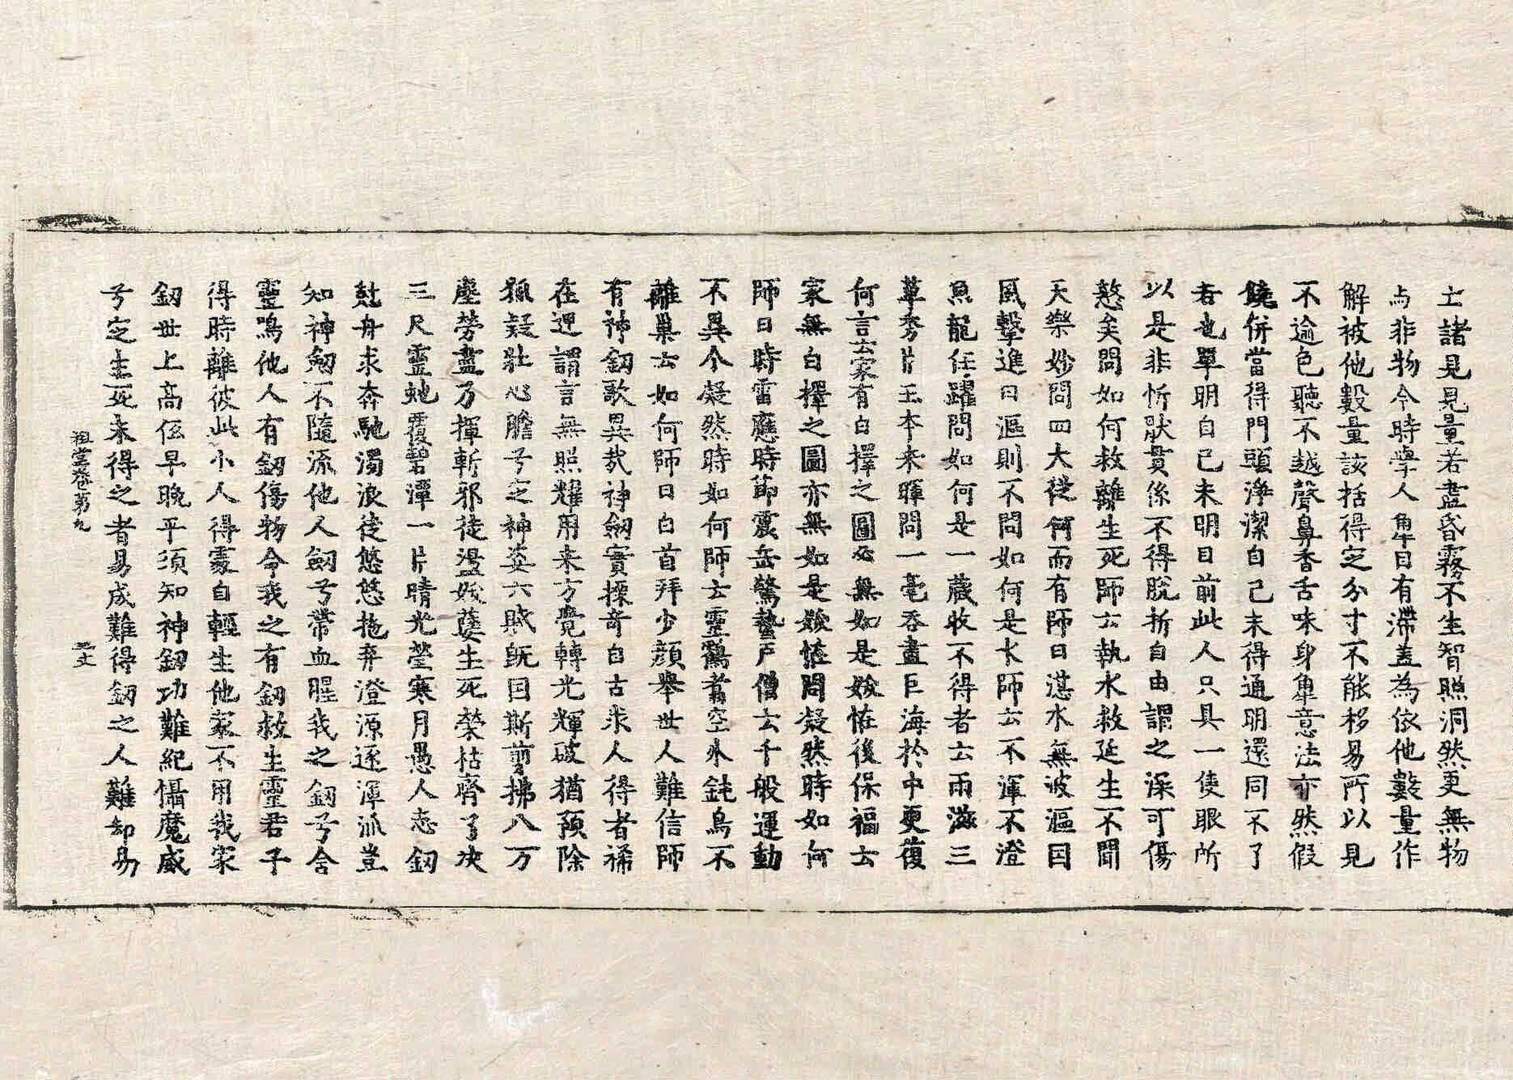 土諸見見量若盡昏霧不生智照洞然更無物
与非物今時學人觸目有滯盖為依他數量作
解被他數量該括得定分寸不能移易所以見
不逾色聽不越聲鼻香舌味身觸意法亦然假
饒併當得門頭淨潔自己未得通明還同不了
者也單明自己未明目前此人只具一隻眼所
以是非忻猒貫係不得脫折自由謂之深可傷
慜矣問如何救離生死師云執水救延生不聞
天樂妙問四大從何而有師曰湛水無波漚因
風擊進曰漚則不問如何是水師云不渾不澄
魚龍任躍問如何是一藏收不得者云雨滋三
草秀片玉本來暉問一毫吞盡巨海於中更復
何言云家有白擇之圖必無如是妖恠後保福云
家無白擇之圖亦無如是妖恠問凝然時如何
師曰時雷應時節震岳驚蟄戶僧云千般運動
不異个凝然時如何師云靈鶴翥空外鈍鳥不
離巢云如何師曰白首拜少顏舉世人難信師
有神釼歌異哉神劒實摽竒自古求人得者稀
在逈謂言無照耀用来方覺轉光輝破猶預除
狐疑壯心膽兮之神姿六賊旣因斯剪拂八万
塵勞盡乃揮斬邪徒盪妖孽生死榮枯齊了决
三尺靈虵覆碧潭一片晴光瑩寒月愚人忘釼
尅舟求奔馳濁浪徒悠悠拖弃澄源逐渾派豈
知神劒不隨流他人劒兮帶血腥我之釼兮含
靈鳴他人有釼傷物命我之有釼救生靈君子
得時離彼此小人得處自輕生他家不用我家
釼世上高低早晚平須知神釼功難紀懾魔威
兮定生死未得之者易成難得釼之人難却易
祖堂卷第九